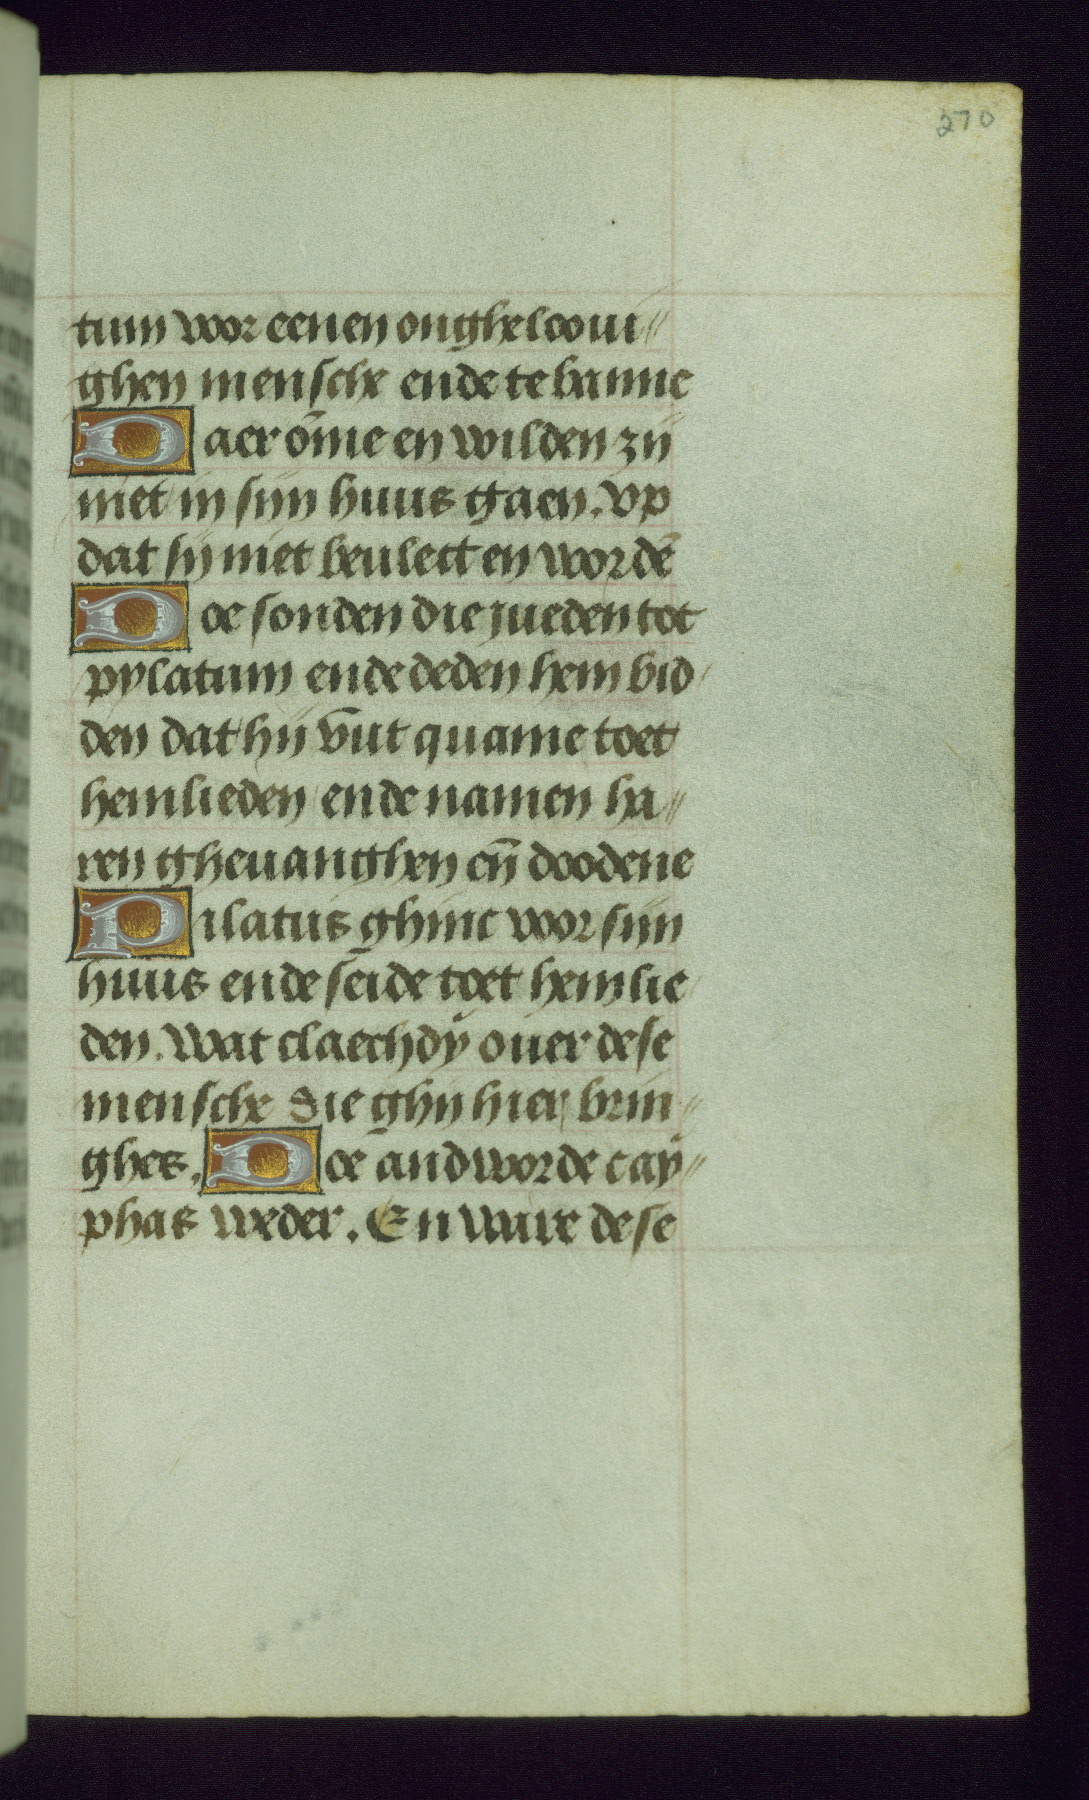 270
tum voor eenen onghelooui//
ghen mensche ende te banne
Daerōme en wilden zij
niet in sijn huus gaen. Vp
dat sij niet beulect en wordē
Doe sonden die jueden tot
pylatum ende deden hem bid
den dat hij vut quame toet
hemlieden ende namen ha//
ren gheuanghen eñ doodene
Pilatus ghinc voor sijn
huus ende seide toet hemlie
den. Wat claechdy ouer dese
mensche die ghij hier brin//
ghes. Doe andworde cay//
phas weder. En ware dese